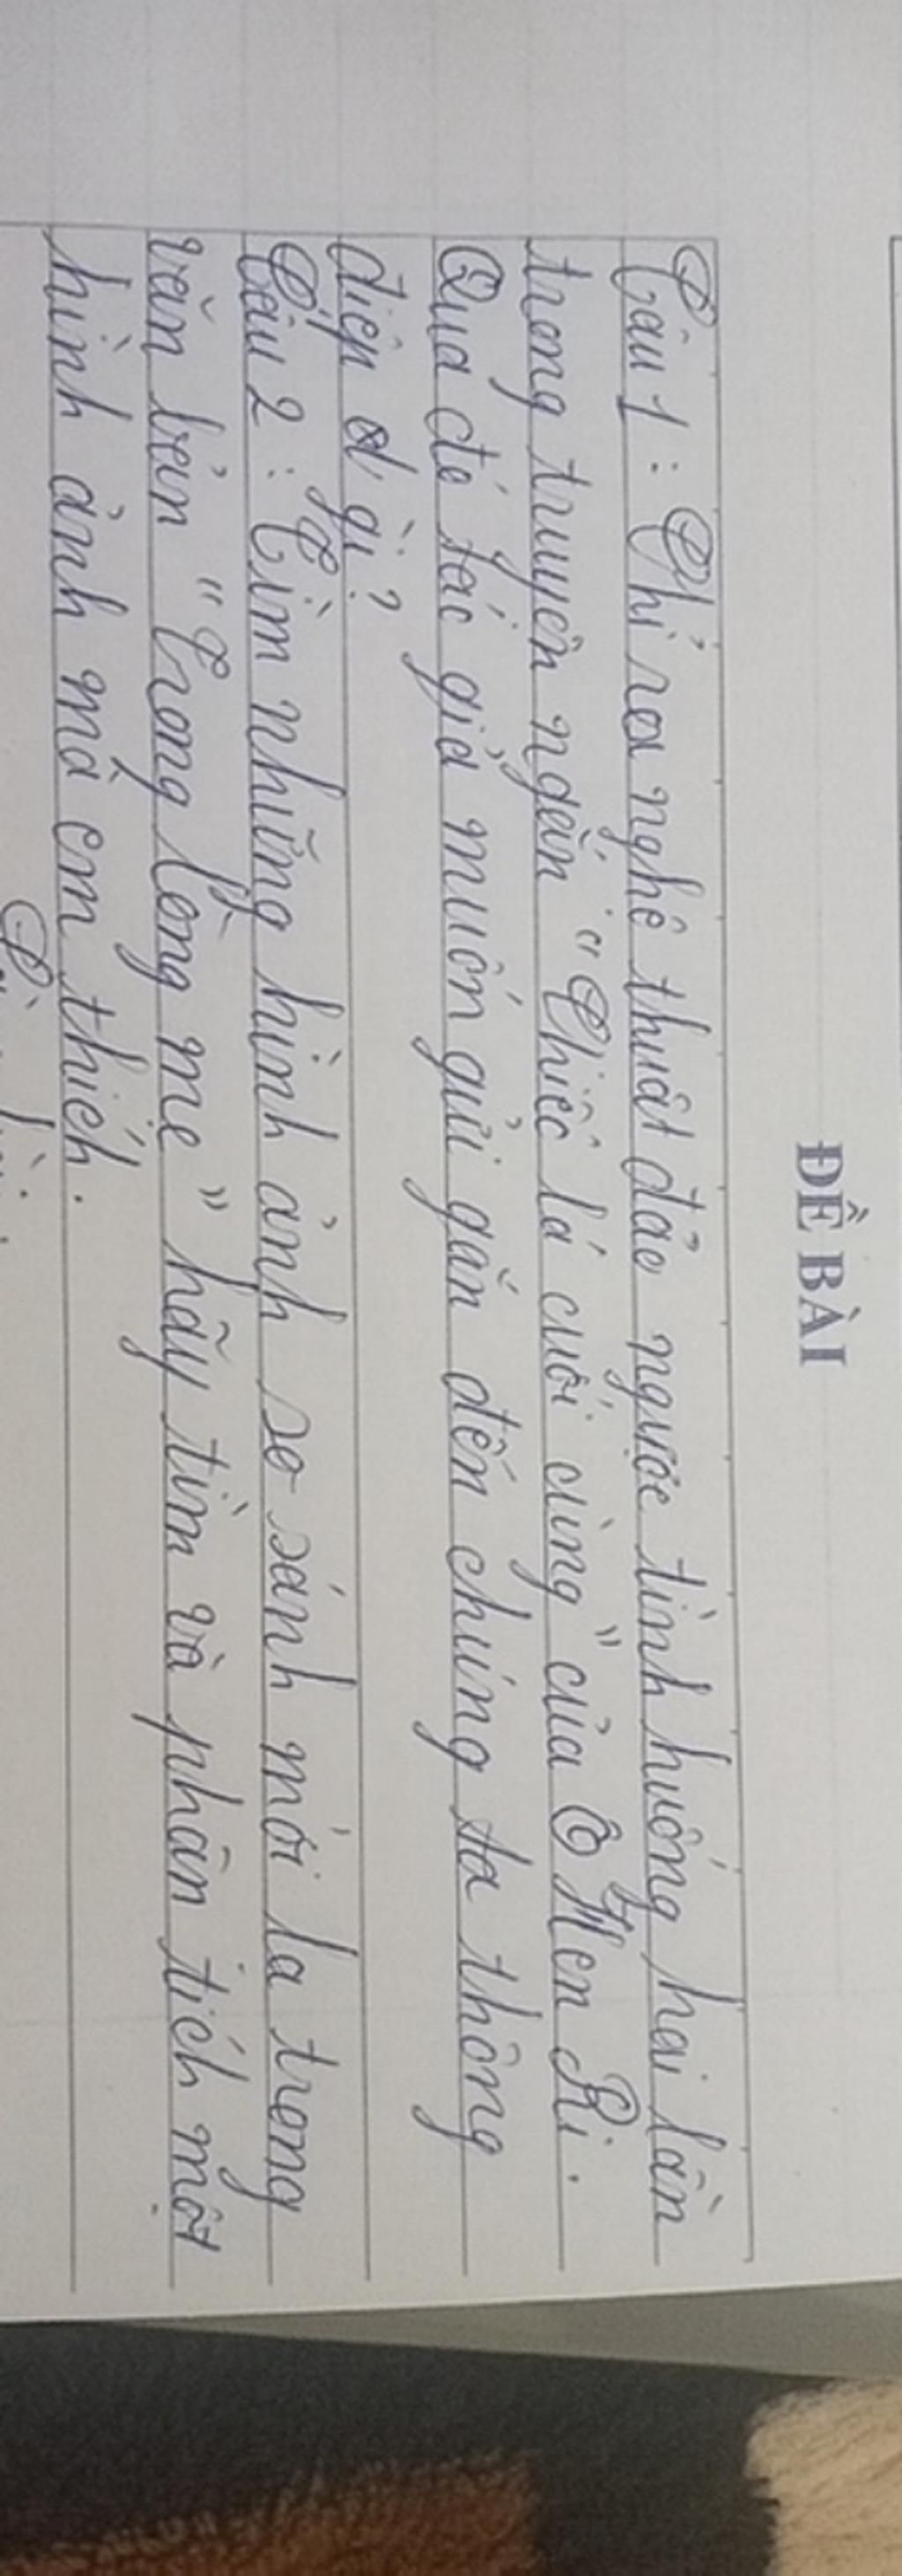 ĐỀ BÀI
Câu 1: Chỉ ra nghệ thuật đảo ngược tình huống hai lần
trong truyện ngắn "Chiếc lá cuối cùng" của Ô Hen Ri.
Qua đó tác giả muốn gửi gắm đến chúng ta thông
điệp gì?
Câu 2: Tìm những hình ảnh so sánh mới lạ trong
văn bản "Trong lòng mẹ" hãy tìm và phân tích một
hình ảnh mà em thích.